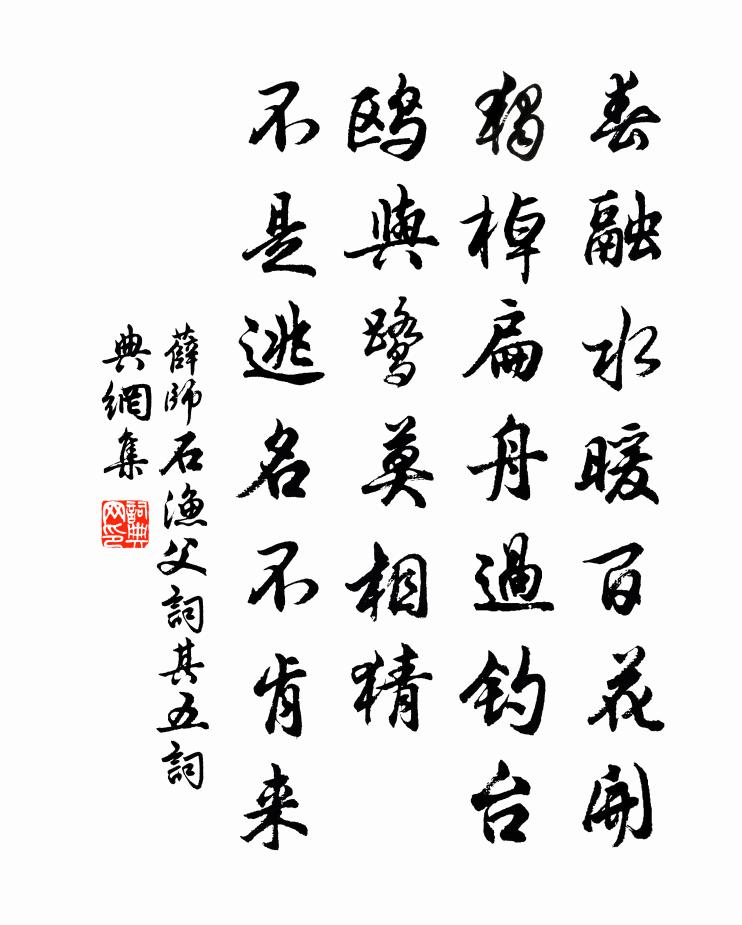 春融水暖百花開
獨棹扁舟過钓台
鸥與鹭莫相猜
不是逃名不肯来
薛師石漁父詞其五詞
典網集
詞典网印